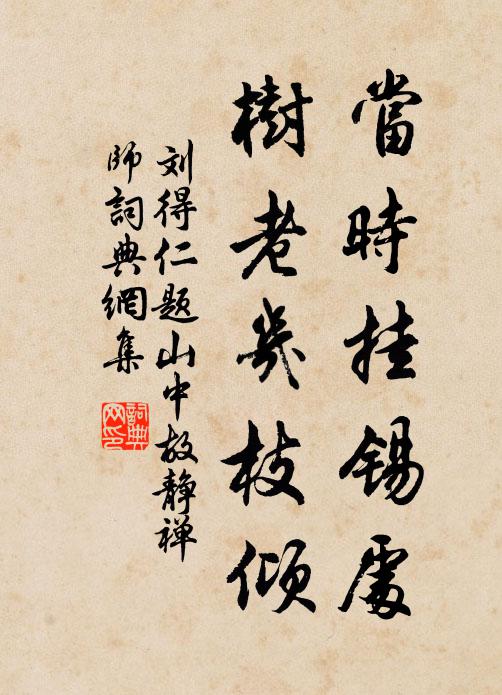 當時挂錫處
樹老幾枝傾
刘得仁题山中故静禅
师詞典網集
詞典网印